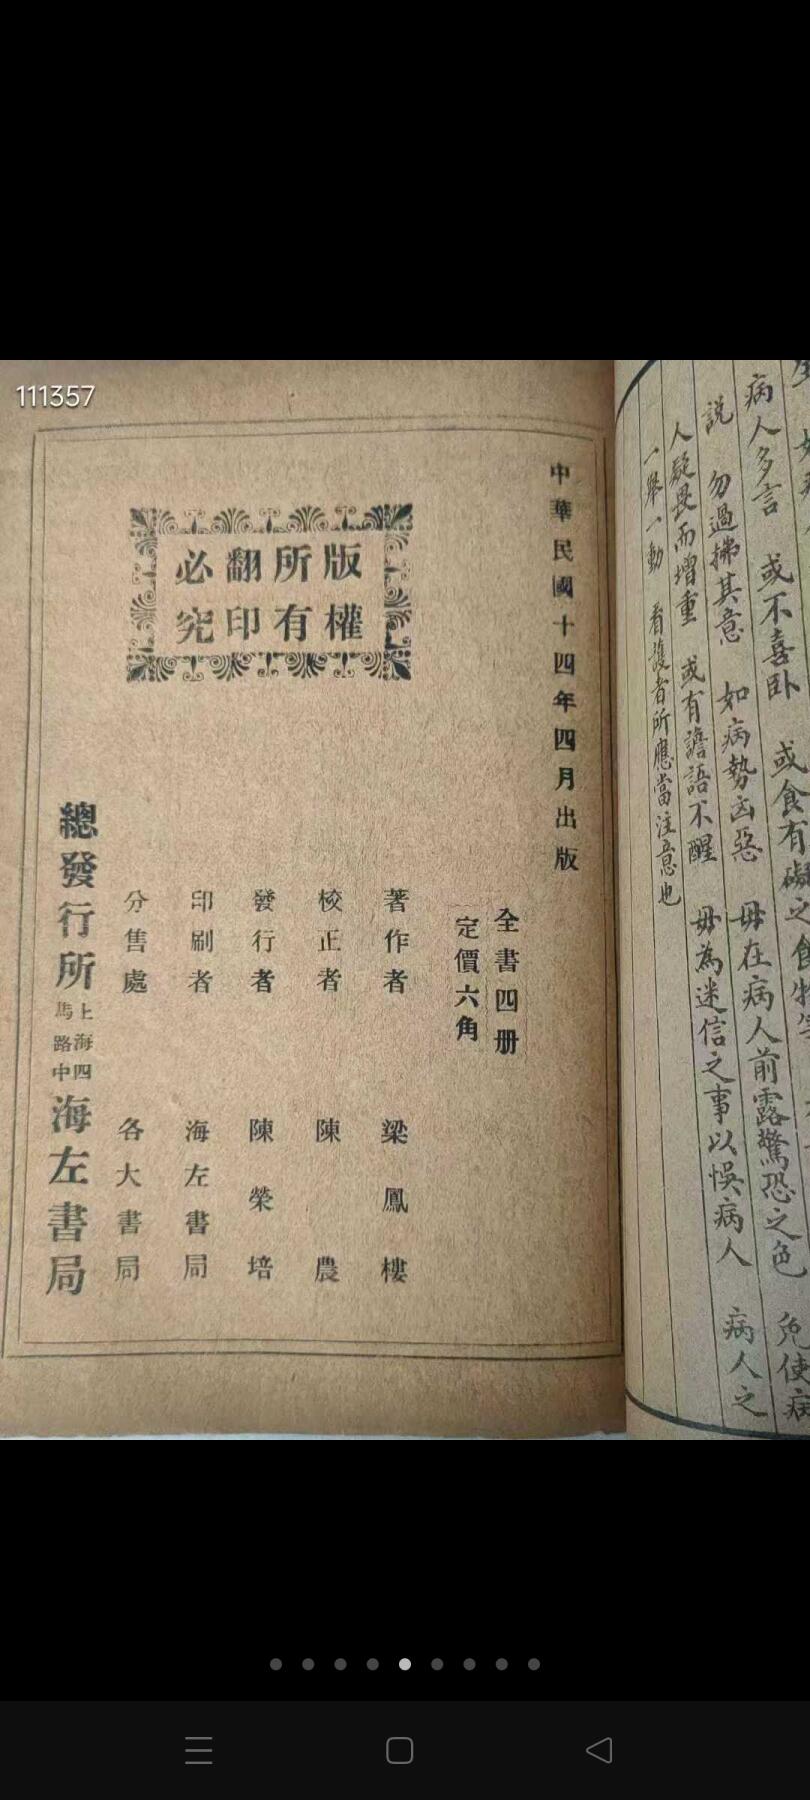 111357
病人多言　或不喜臥　或食有礙之食物
說　勿過拂其意　如病勢凶惡　毋在病人前露驚恐之色　免使病
人疑畏而增重　或有譫語不醒　毋為迷信之事以悞病人　病人之
一舉一動　看護者所應當注意也
中華民國十四年四月出版
全書四册
定價六角
版權
所有
翻印
必究
著作者　梁鳳樓
校正者　陳農
發行者　陳榮培
印刷者　海左書局
分售處　各大書局
總發行所　上海四馬路中　海左書局